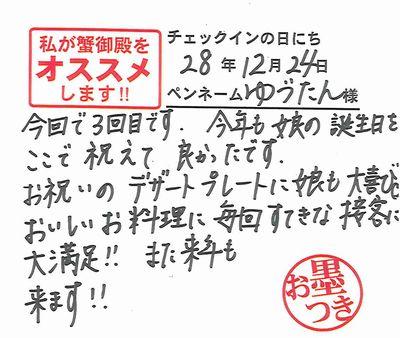 私が蟹御殿を
オススメ
します!!
チェックインの日にち
28年12月24日
ペンネームゆうたん様
今回で3回目です. 今年も娘の誕生日を
ここで祝えて良かったです.
お祝いのデザートプレートに娘も大喜びで
おいしいお料理に毎回すてきな接客に
大満足!! また来年も
来ます!!
墨
おつき